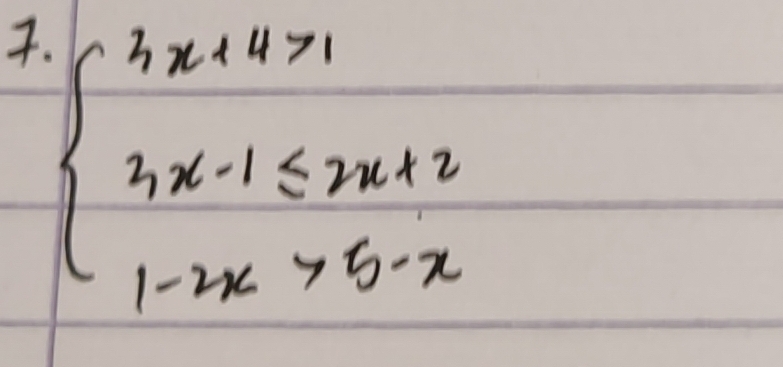 7. { 3x+4>1
3x-1≤2x+2
1-2x>5-x